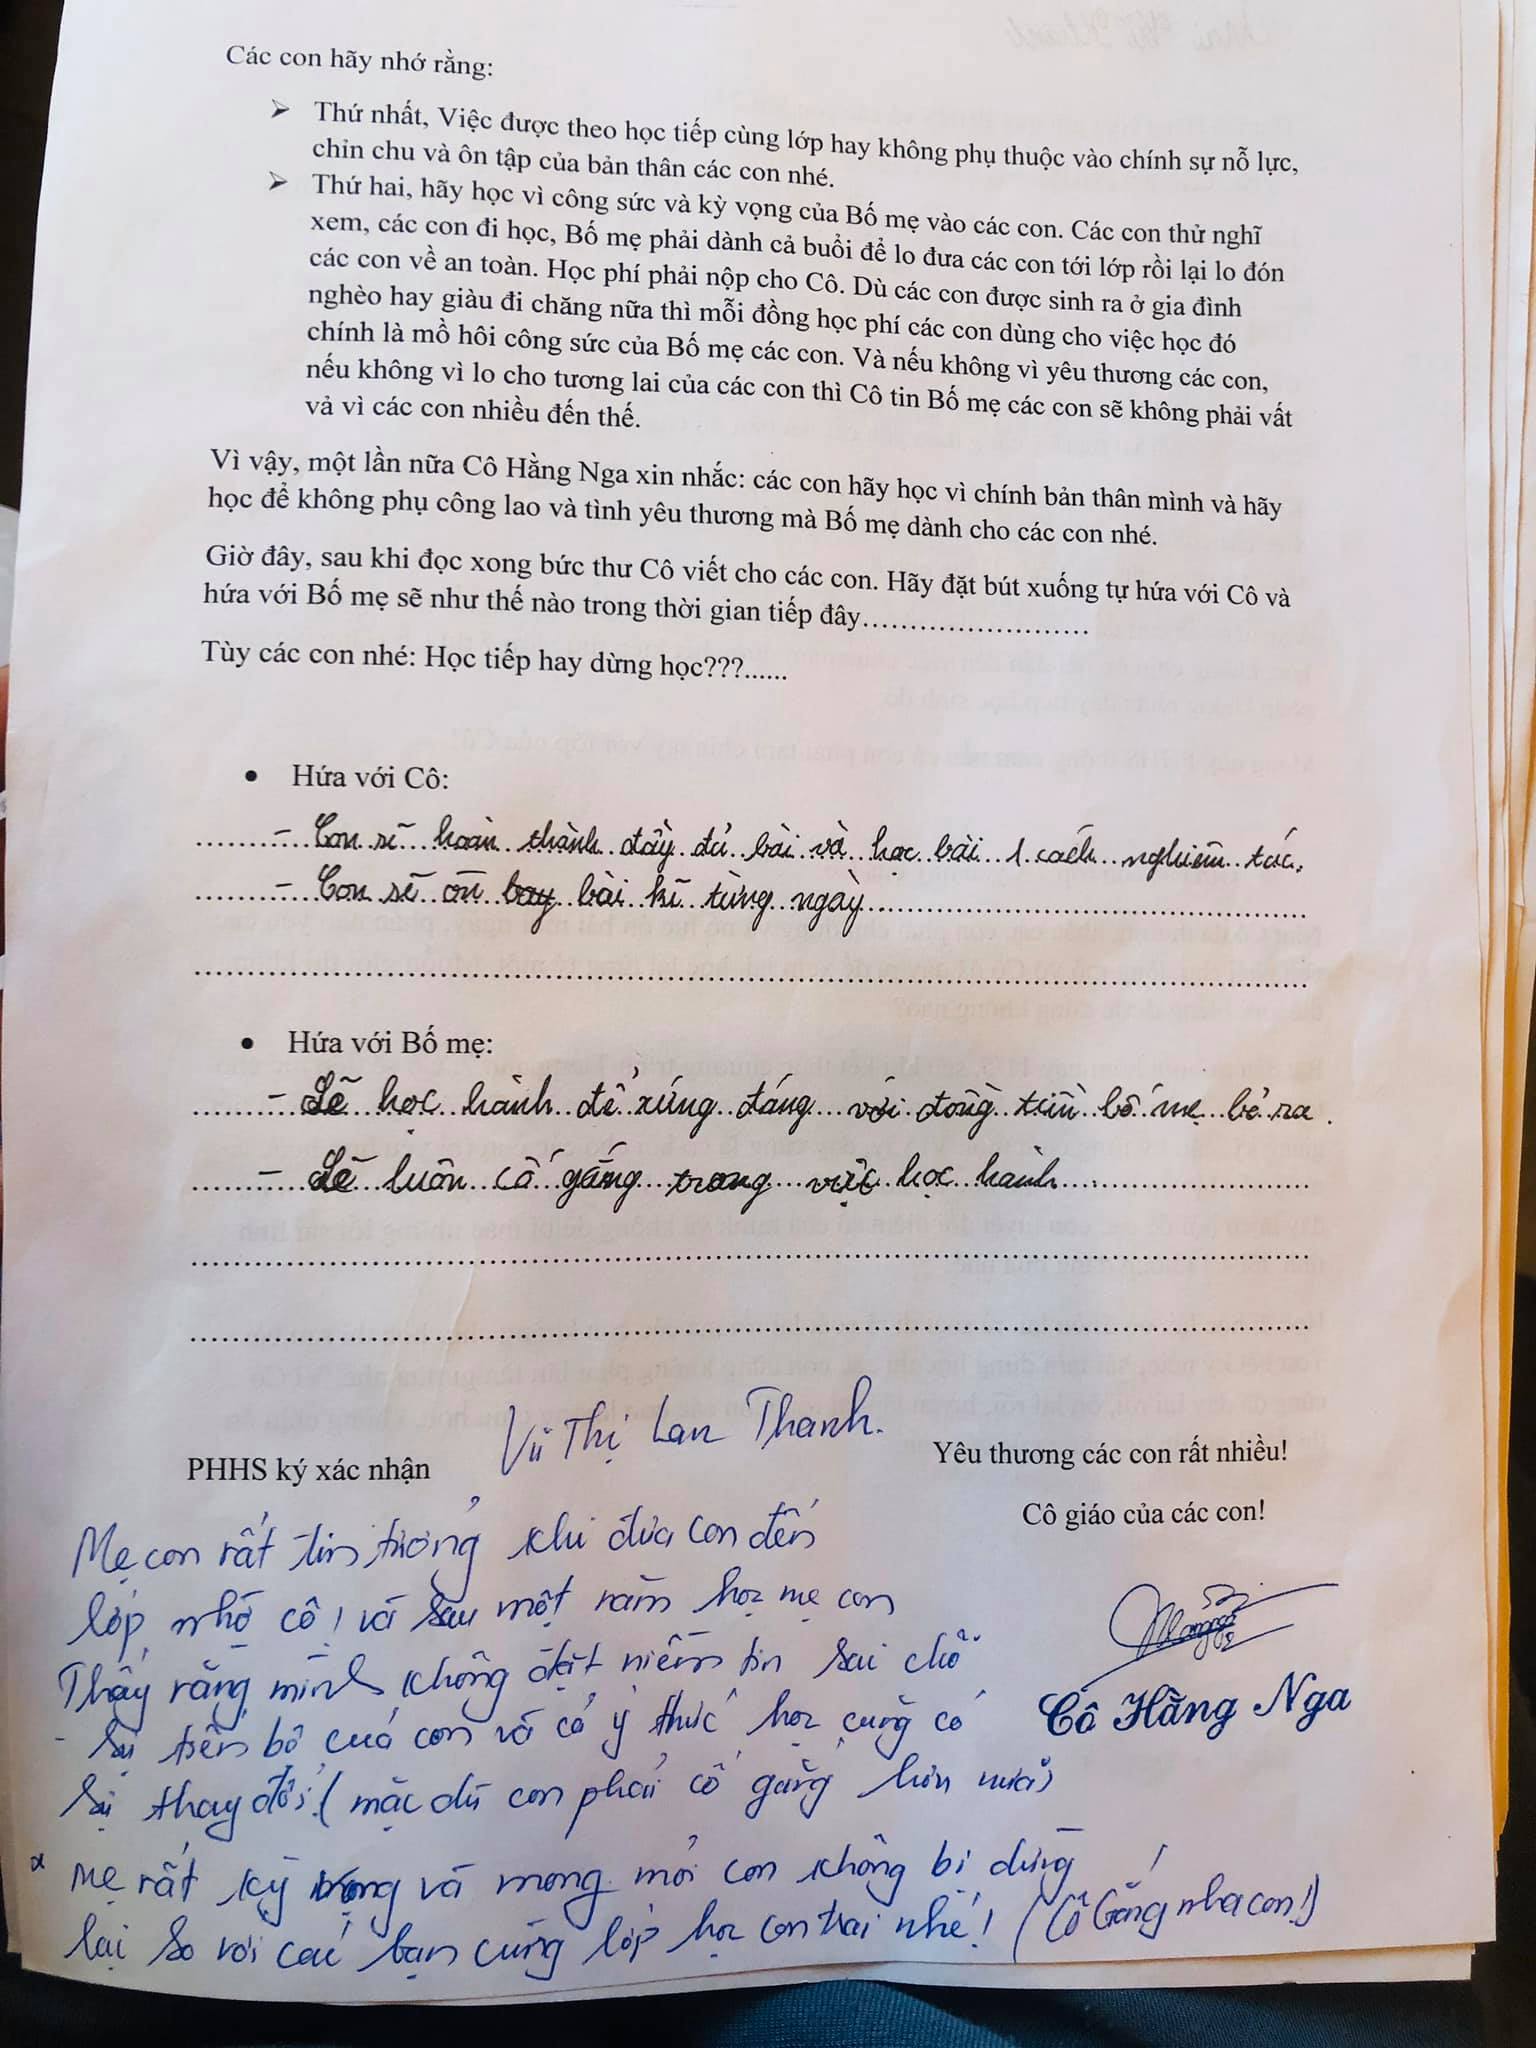 Các con hãy nhớ rằng:
➢ Thứ nhất, Việc được theo học tiếp cùng lớp hay không phụ thuộc vào chính sự nỗ lực,
chỉn chu và ôn tập của bản thân các con nhé.
➢ Thứ hai, hãy học vì công sức và kỳ vọng của Bố mẹ vào các con. Các con thử nghĩ
xem, các con đi học, Bố mẹ phải dành cả buổi để lo đưa các con tới lớp rồi lại lo đón
các con về an toàn. Học phí phải nộp cho Cô. Dù các con được sinh ra ở gia đình
nghèo hay giàu đi chăng nữa thì mỗi đồng học phí các con dùng cho việc học đó
chính là mồ hôi công sức của Bố mẹ các con. Và nếu không vì yêu thương các con,
nếu không vì lo cho tương lai của các con thì Cô tin Bố mẹ các con sẽ không phải vất
vả vì các con nhiều đến thế.
Vì vậy, một lần nữa Cô Hằng Nga xin nhắc: các con hãy học vì chính bản thân mình và hãy
học để không phụ công lao và tình yêu thương mà Bố mẹ dành cho các con nhé.
Giờ đây, sau khi đọc xong bức thư Cô viết cho các con. Hãy đặt bút xuống tự hứa với Cô và
hứa với Bố mẹ sẽ như thế nào trong thời gian tiếp đây........................
Tùy các con nhé: Học tiếp hay dừng học???......
• Hứa với Cô:
- Con sẽ hoàn thành đầy đủ bài và học bài 1 cách nghiêm túc.
- Con sẽ ôn bài kĩ từng ngày
• Hứa với Bố mẹ:
- Sẽ học hành để xứng đáng với đồng tiền bố mẹ bỏ ra.
- Sẽ luôn cố gắng trong việc học hành
Vũ Thị Lan Thanh.
PHHS ký xác nhận
Yêu thương các con rất nhiều!
Cô giáo của các con!
Mẹ con rất tin tưởng khi đưa con đến
lớp nhờ cô! và sau một năm học mẹ con
Thấy rằng mình không đặt niềm tin sai chỗ
- Sự tiến bộ của con và cả ý thức học cũng có
sự thay đổi! (mặc dù con phải cố gắng hơn nữa)
Cô Hằng Nga
* Mẹ rất kỳ vọng và mong mỏi con không bị dừng
lại so với các bạn cùng lớp học con trai nhé! (Cố Gắng nha con!)